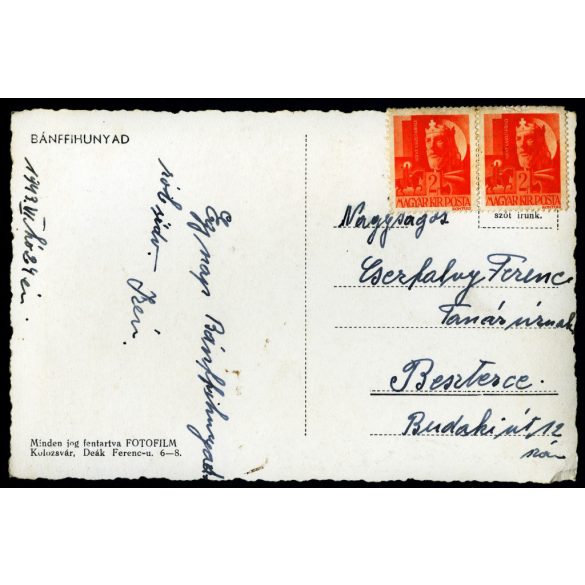 BÁNFFIHUNYAD
Egy nap Bánffihunyad
Minden jog fentartva FOTOFILM
Kolozsvár, Deák Ferenc-u. 6—8.
2
MAGYAR KIR. POSTA
2
MAGYAR KIR. POSTA
szót írunk.
Nagyságos
Cserfalvy Ferenc
Tanár úrnak
Beszterce.
Budaki út 12
szám